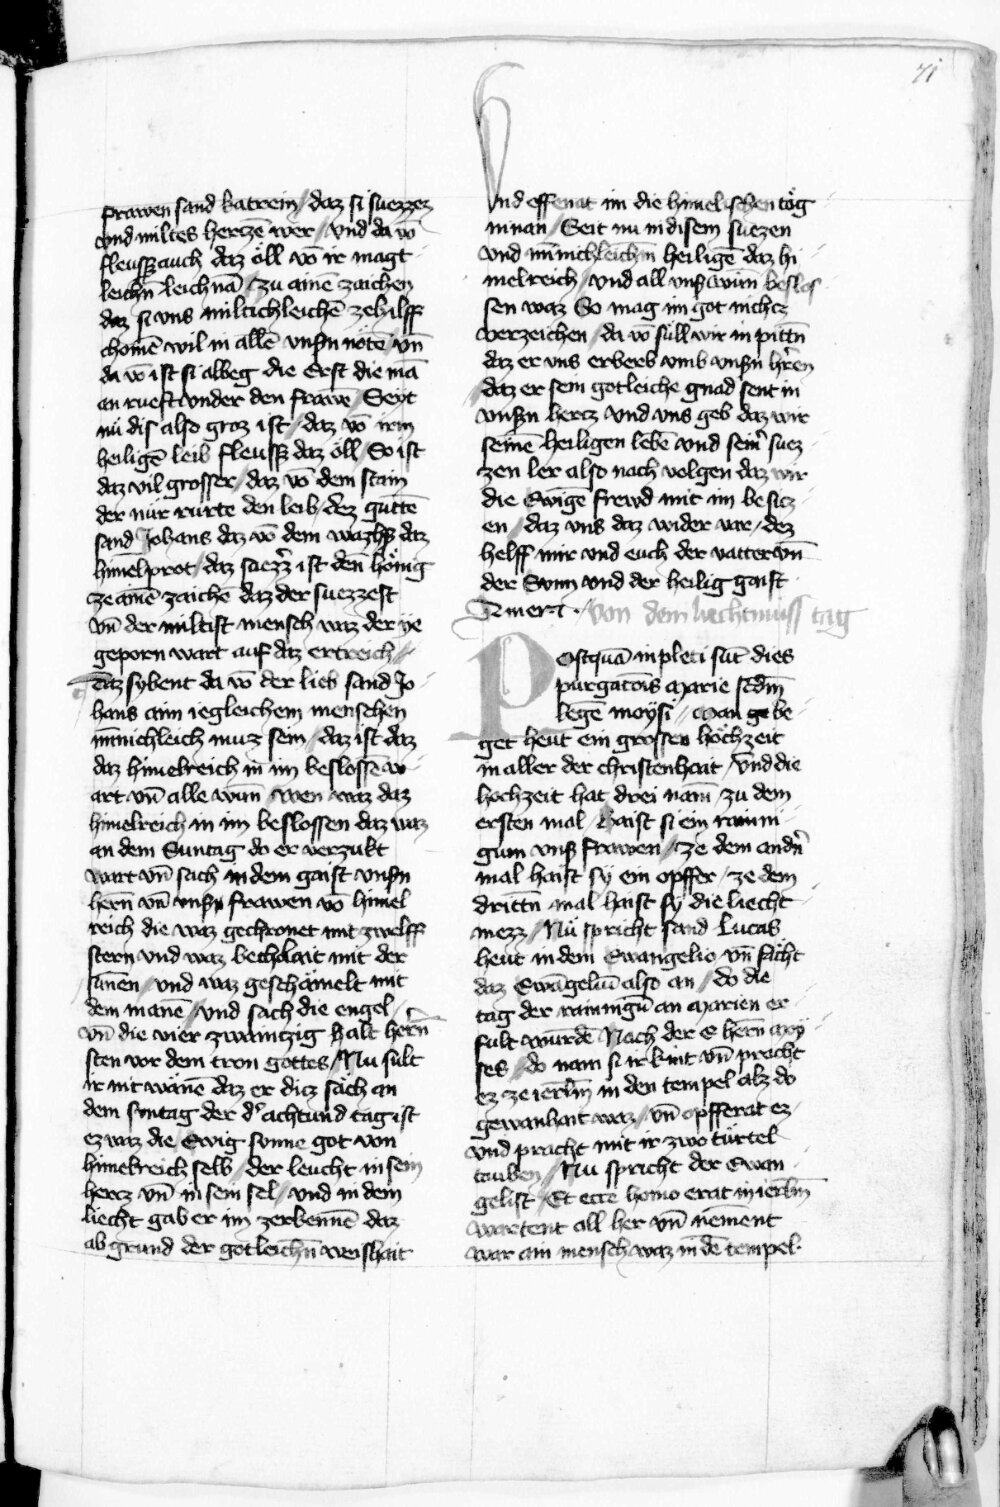 71
frawen sand katrein // daz si suezzez
vnd miltes hertzē wer // vnd da vō
fleusst auch daz ȯll vō ir magt
leichn̄ leichnā // zu ainē zaichen
daz si vns miltichleichē zehilff
chomē wil in allē vnsn nȯtē vn̄
da vō ist si albeg die Erst die mā
an rueft vnder den frawē // Seyt
nu dis also groz ist // daz vō irm
heiligē leib fleusst daz ȯll // So ist
daz vil grosser // daz vō dem stain
der nür rurte den leib // dez gutē
sand Johans daz vō dem wazhst daz
himelprot // daz suezz ist den hȯnig
ze ainē zaichē daz der suezzest
vn̄ der miltist mensch waz der ye
geporn wart auf daz ertreich //
Daz sybent da vō der lieb sand Jo
hans aim iegleichem menschen
minichleich muz sein // daz ist daz
daz himelreich in im beslossē w
art vn̄ alle wun̄ // wen waz daz
himelreich in im beslossen daz waz
an dem Suntag do er verzukt
wart vn̄ sach in dem gaist vnsn
hern̄ vn̄ vnsn frawen vō himel
reich die waz gechronet mit zwelff
stern vnd waz bechlait mit der
sunen // vnd waz geschämelt mit
dem manē // vnd sach die engel
vn̄ die vier zwaintzig halt hern̄
sten vor dem tron gottes // Nu sult
ir nit wänē daz er dicz säch an
dem smtag der d' achtund tag ist
ez waz die Ewig sonne got von
himelreich selb // der leucht in sein
hercz vn̄ in sein sel // vnd in dem
liecht gab er im zerkennē daz
ab grund der gotleichn̄ weishait
Vnd effenat im die himelischen tȯg
in nan // Seit nu in disem suezen
vnd minichleichn̄ heiligē daz hi
melreich // vnd all vnsz wun̄ beslos
sen waz So mag im got nichcz
verzeichen // da vō sull wir in pittn̄
daz er vns erberb vmb vnsn hr̄en
daz er sein gotleiche gnad sent in
vnsn hercz vnd vns geb daz wir
seinē heiligen lebē vnd sein' suez
zen ler also nach volgen daz wir
die Ewige frewd mit im besicz
en // daz vns daz wider var // dez
helff mir vnd euch der vatter vn̄
der Sunn vnd der heilig gaist
Amen · Von dem liechtmiss tag
Postquā inpleti sūt dies
purgatōis Marie scdm̄
legē moysi // Man ge be
get heut ein grossen hȯchzeit
in aller der christenhait // vnd die
hochzeit hat drei nam̄ // zu dem
ersten mal // haist si ein raini
gum vnsz frawen // ze dem andn̄
mal haist sy ein opffer // ze dem
drittn̄ mal haist sy die liecht
mezz // Nu spricht sand Lucas
heut in dem Ewangelio vn̄ fächt
daz Ewāgeliū also an // do die
tag der rainingū an Marien er
fult wurdē Nach der E hern̄ Moy
ses // do nam si ir kint vn̄ pracht
ez ze ierl̄m in den tempel alz do
gewanhait waz // vn̄ opfferat ez
vnd pracht mit ir zwo türtel
tauben // Nu spricht der Ewan
gelist // Et ecce homo erat in ierl̄m
wartent all her vn̄ nement
war ain mensch waz in dē tempel